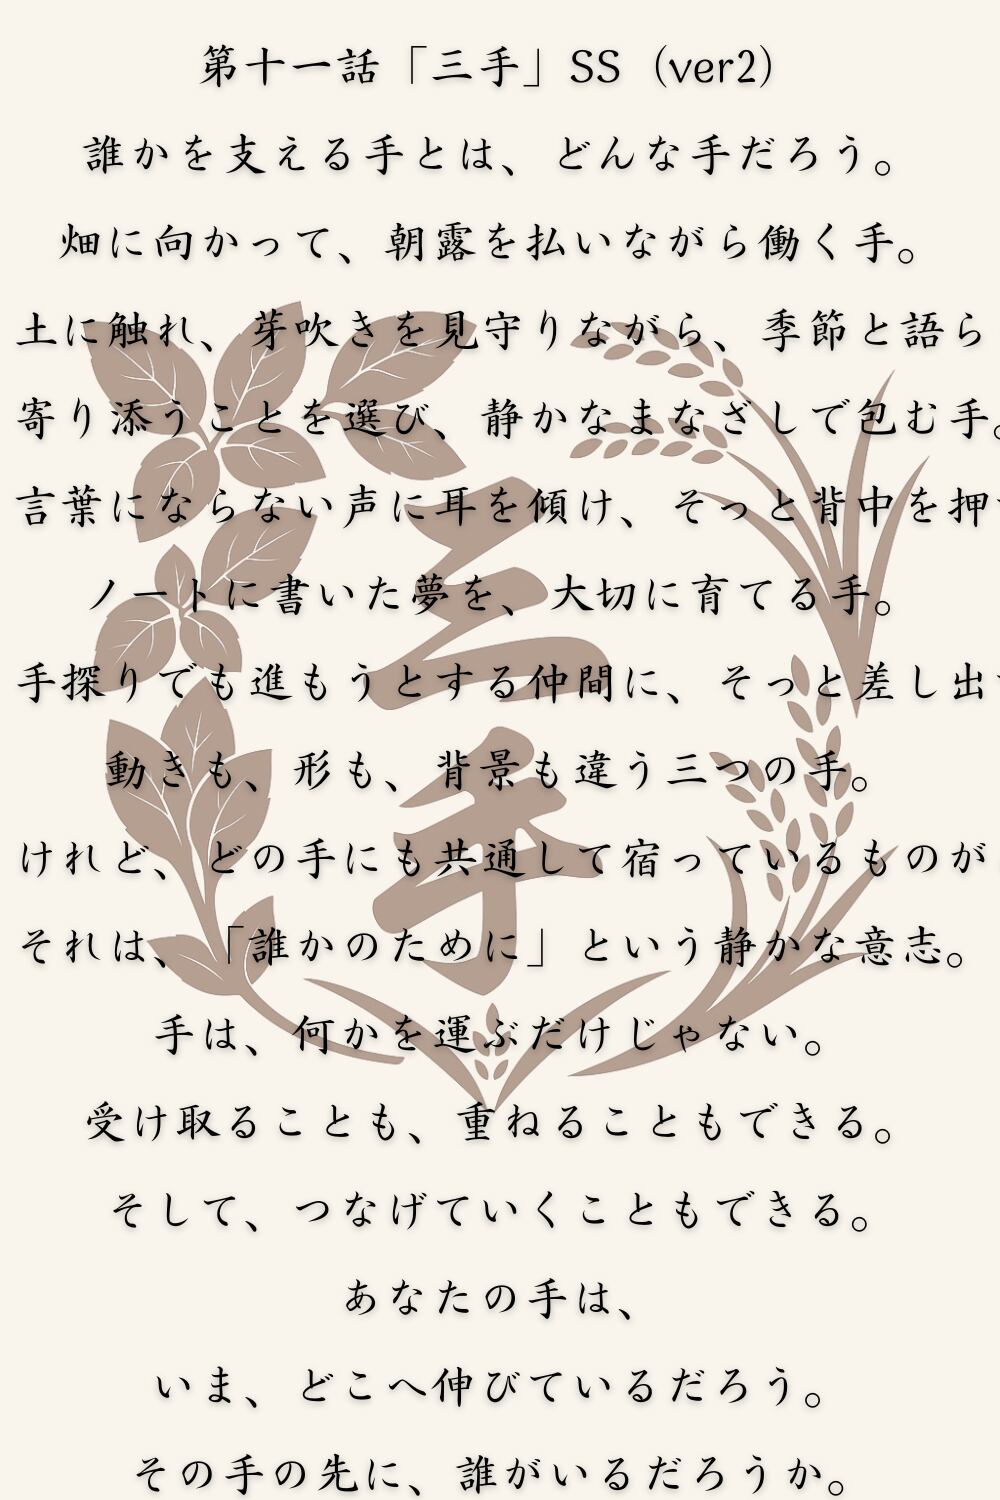 第十一話「三手」SS（ver2）
誰かを支える手とは、どんな手だろう。
畑に向かって、朝露を払いながら働く手。
土に触れ、芽吹きを見守りながら、季節と語ら
寄り添うことを選び、静かなまなざしで包む手。
言葉にならない声に耳を傾け、そっと背中を押
ノートに書いた夢を、大切に育てる手。
手探りでも進もうとする仲間に、そっと差し出
動きも、形も、背景も違う三つの手。
けれど、どの手にも共通して宿っているものが
それは、「誰かのために」という静かな意志。
手は、何かを運ぶだけじゃない。
受け取ることも、重ねることもできる。
そして、つなげていくこともできる。
あなたの手は、
いま、どこへ伸びているだろう。
その手の先に、誰がいるだろうか。
三手